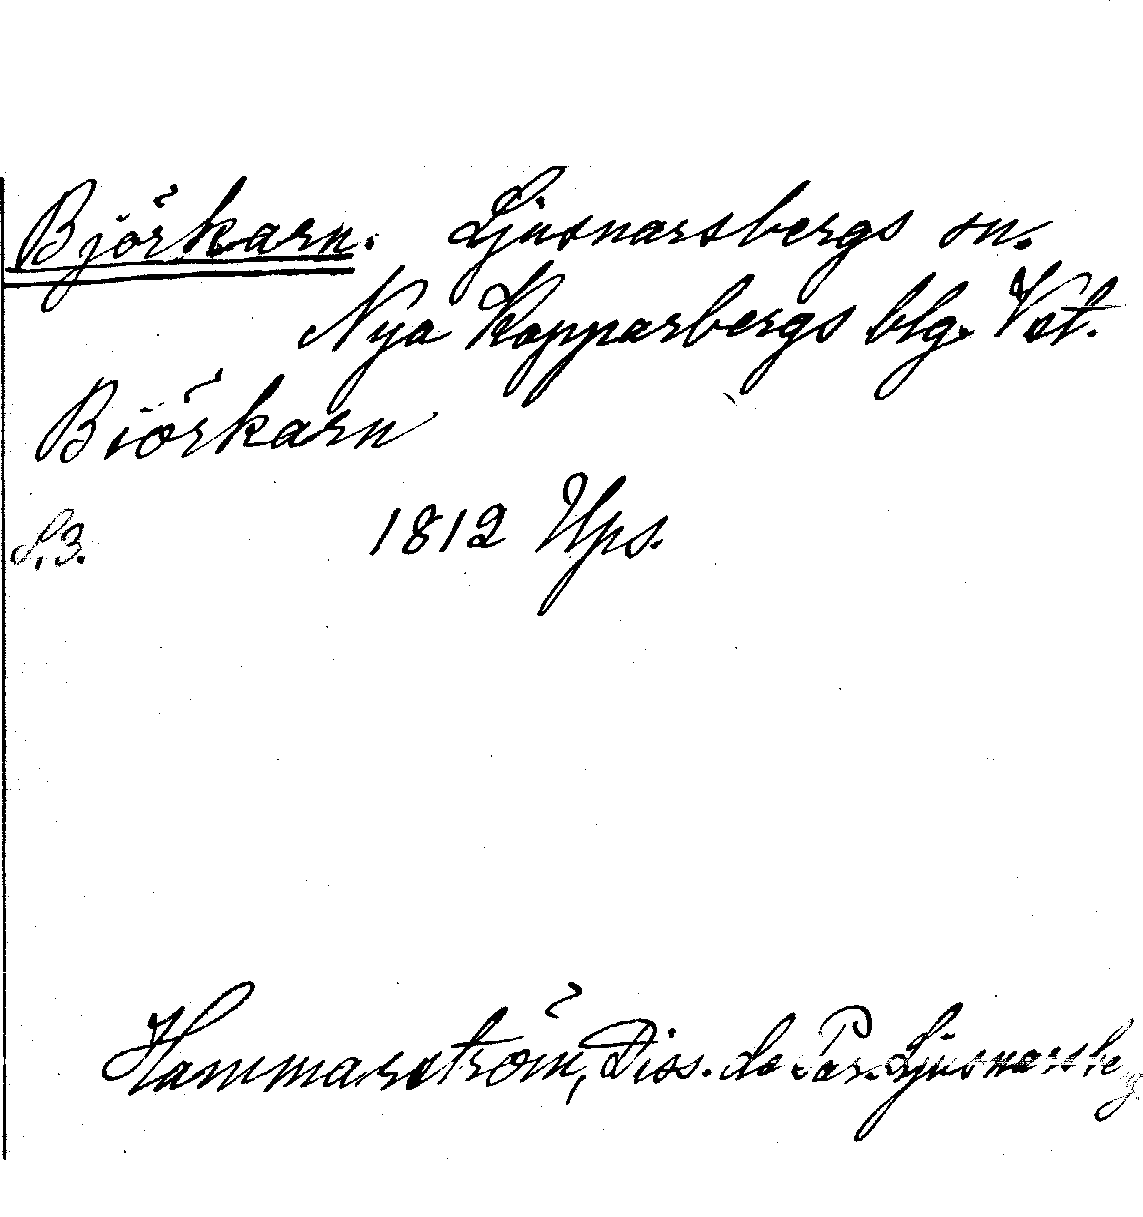 Björkarn. Ljusnarsbergs sn.
Nya Kopparbergs blg. Vst.
Biörkarn
S. 3. 1812 Ups.
Hammarström, Diss. de Par. Ljusnarsbg.